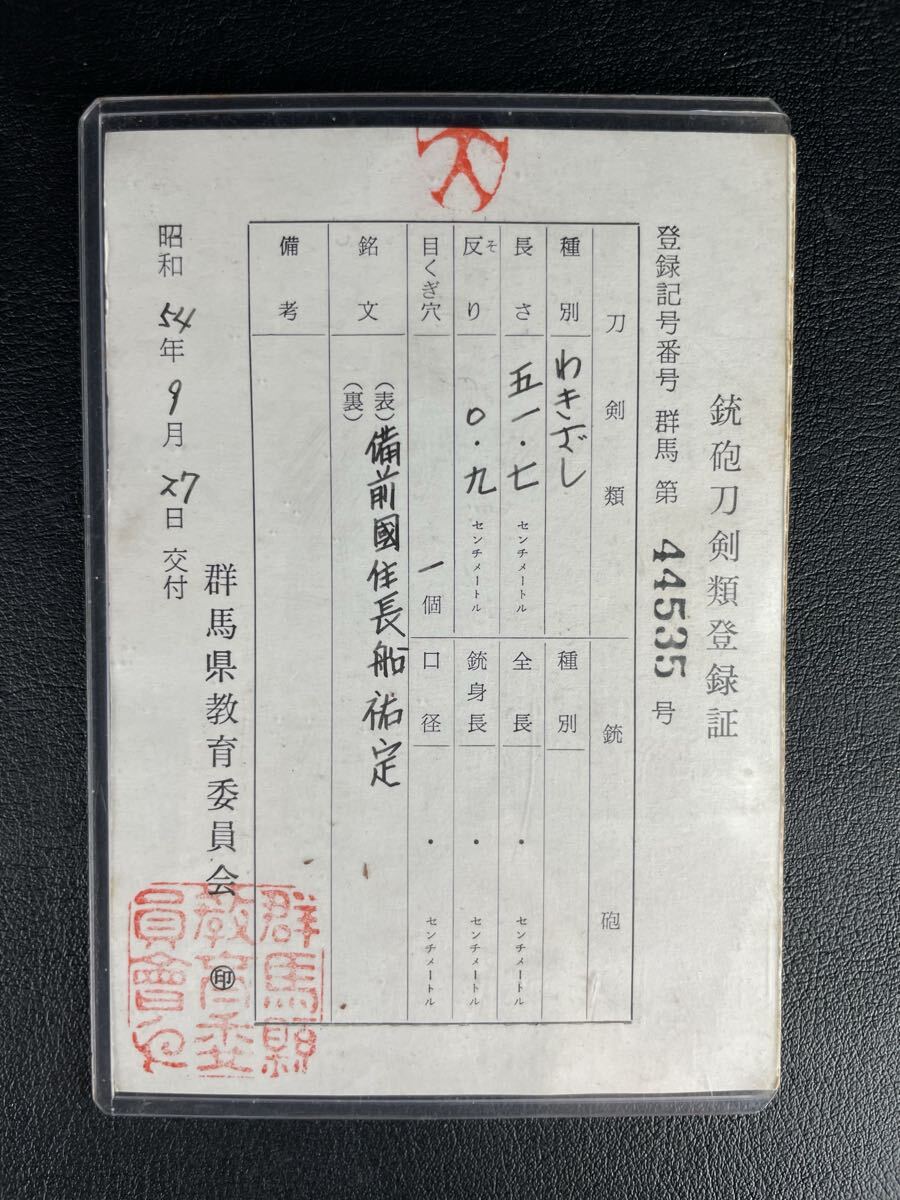 銃砲刀剣類登録証
登録記号番号 群馬 第 44535 号
刀剣類
種別 わきざし
長さ 五一・七 センチメートル
反り そ 〇・九 センチメートル
目くぎ穴 一 個
銘文 (表) 備前國住長船祐定
(裏)
備考
銃砲
種別
全長 ・ センチメートル
銃身長 ・ センチメートル
口径 ・ センチメートル
昭和 54 年 9 月 27 日 交付
群馬県教育委員会 ㊞
群馬縣
教育委
員會之